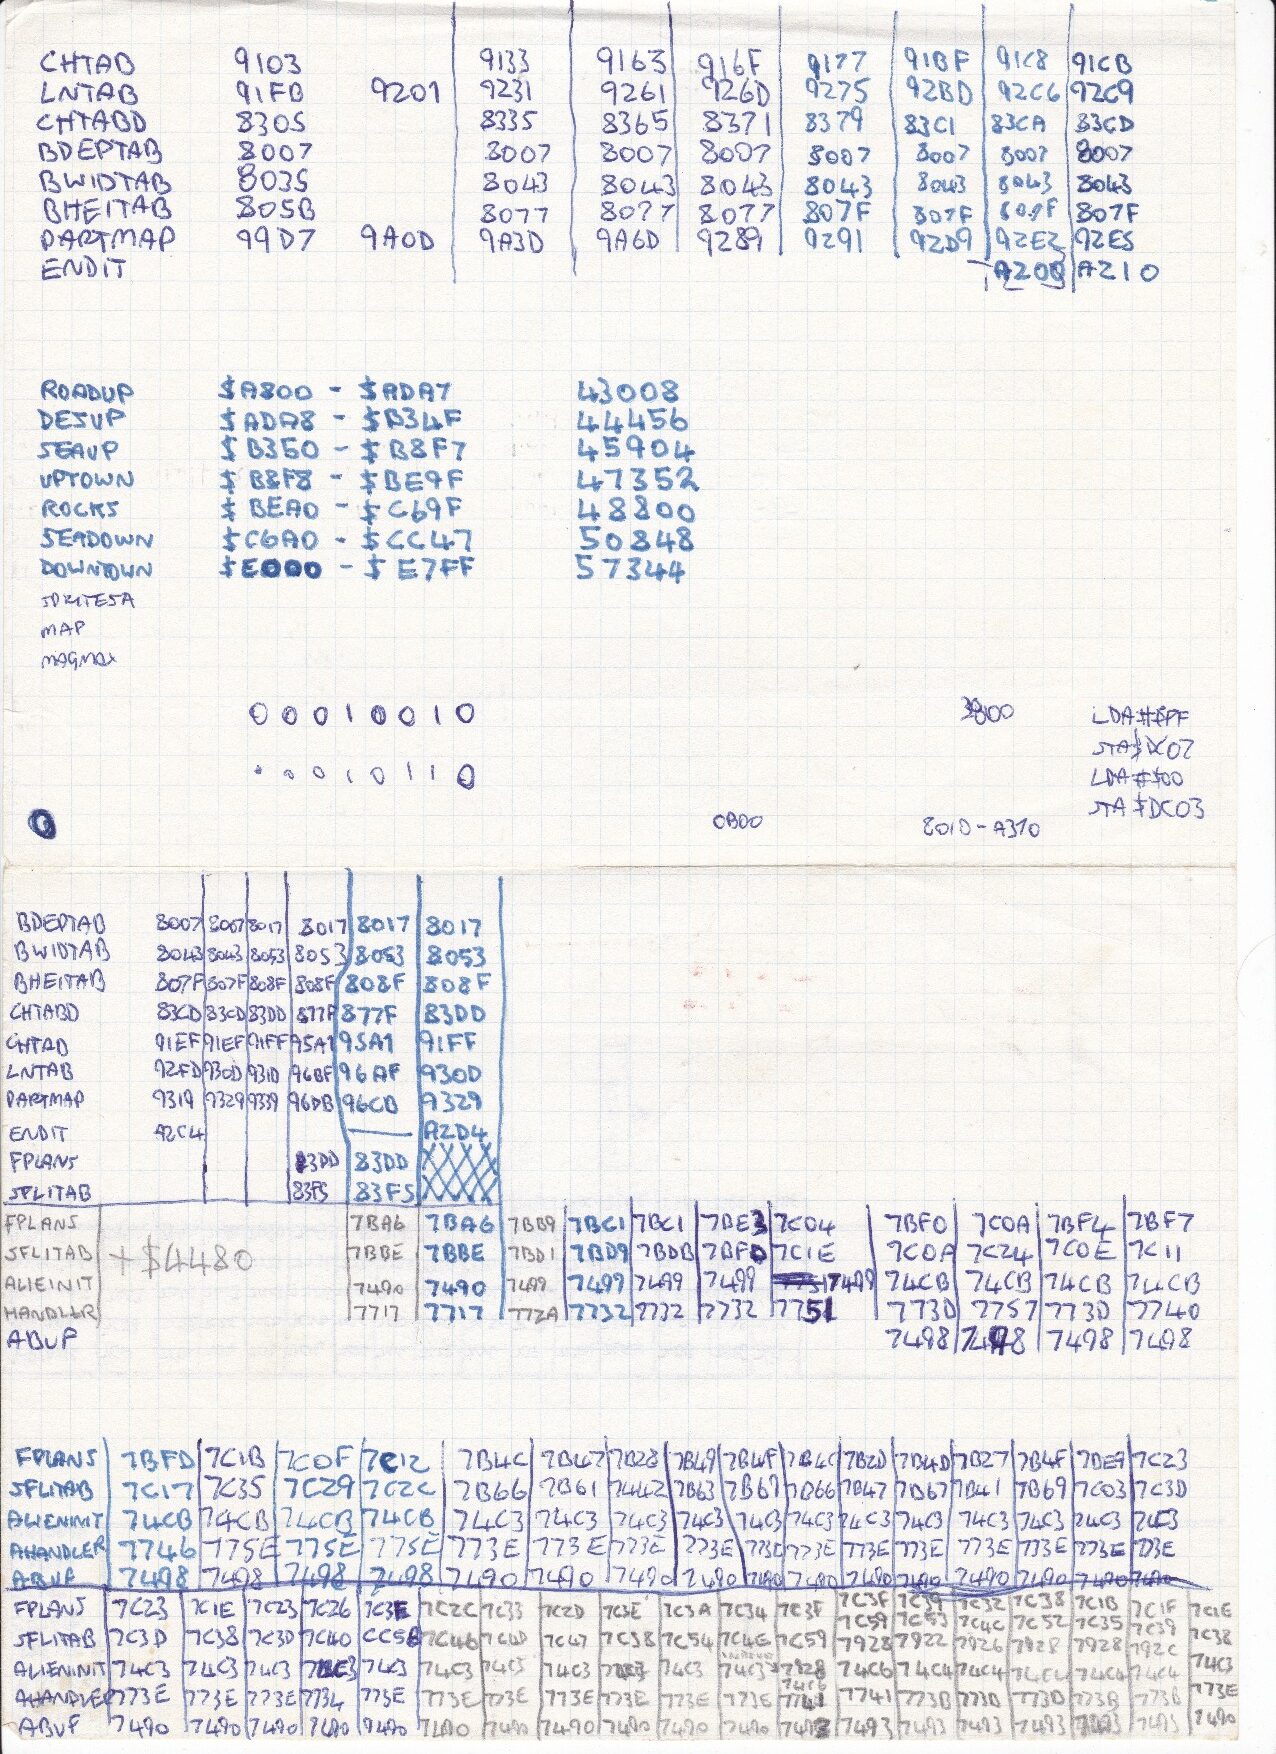 CHTAB 9103 9133 9163 916F 9177 91BF 91C8 91CB
LNTAB 91FB 9201 9231 9261 926D 9275 92BD 92C6 92C9
CHTABD 8305 8335 8365 8371 8379 83C1 83CA 83CD
BDEPTAB 8007 8007 8007 8007 8007 8007 8007 8007
BWIDTAB 8035 8043 8043 8043 8043 8043 8043 8043
BHEITAB 805B 8077 8077 8077 807F 807F 807F 807F
PARTMAP 99D7 9A0D 9A3D 9A6D 9289 9291 92D9 92E2 92E5
ENDIT A200 A210
ROADUP $A800 - $ADA7 43008
DESUP $ADA8 - $B34F 44456
SEAUP $B350 - $B8F7 45904
UPTOWN $B8F8 - $BE9F 47352
ROCKS $BEA0 - $C69F 48800
SEADOWN $C6A0 - $CC47 50848
DOWNTOWN $E000 - $E7FF 57344
SPRITESA
MAP
MAGMAX
0 0 0 1 0 0 1 0 LDA#$FF
STA$DC02
0 0 0 1 0 1 1 0 LDA#$00
0 0B00 801D-A310 STA$DC03
BDEPTAB 8007 8007 8017 8017 8017 8017
BWIDTAB 8043 8043 8053 8053 8053 8053
BHEITAB 807F 807F 808F 808F 808F 808F
CHTABD 83CD 83CD 83DD 877F 877F 83DD
CHTAB 91EF 91EF 91FF 95A1 95A1 91FF
LNTAB 92FD 930D 931D 96BF 96AF 930D
PARTMAP 9319 9329 9339 96DB 96CB 9329
ENDIT A2C4 A2D4
FPLANS 83DD 83DD
SPLITAB 83F5 83F5
FPLANS 7BA6 7BA6 7BB9 7BC1 7BC1 7BE3 7C04 7BF0 7C0A 7BF4 7BF7
SFLITAB +$4480 7BBE 7BBE 7BD1 7BD9 7BDB 7BFD 7C1E 7C0A 7C24 7C0E 7C11
ALIEINIT 7490 7490 7499 7499 7499 7499 7499 74CB 74CB 74CB 74CB
HANDLER 7717 7717 772A 7732 7732 7732 7751 773D 7757 773D 7740
ABUF 7498 7498 7498 7498
FPLANS 7BFD 7C1B 7C0F 7C12 7B4C 7B47 7B28 7B49 7B4F 7B4C 7B2D 7B4D 7B27 7B4F 7DE9 7C23
SFLITAB 7C17 7C35 7C29 7C2C 7B66 7B61 7442 7B63 7B69 7B66 7B47 7B67 7B41 7B69 7C03 7C3D
ALIENINIT 74CB 74CB 74CB 74CB 74C3 74C3 74C3 74C3 74C3 74C3 74C3 74C3 74C3 74C3 74C3 74C3
AHANDLER 7746 775E 775E 775E 773E 773E 773E 773E 773E 773E 773E 773E 773E 773E 773E 773E
ABUF 7498 7498 7498 7498 7490 7490 7490 7490 7490 7490 7490 7490 7490 7490 7490 7490
FPLANS 7C23 7C1E 7C23 7C26 7C3E 7C2C 7C33 7C2D 7C3E 7C3A 7C34 7C3F 7C3F 7C39 7C32 7C38 7C1B 7C1F 7C1E
SFLITAB 7C3D 7C38 7C3D 7C40 CC58 7C46 7C4D 7C47 7C38 7C54 7C4E 7C59 7C59 7C53 7C4C 7C52 7C35 7C39 7C38
7928 7922 7926 7928 7928 792C
ALIENINIT 74C3 74C3 74C3 74C3 74C3 74C3 74C3 74C3 74C3 74C3 7928 74C6 74C4 74C4 74C4 74C4 74C4 74C3
AHANDLER 773E 773E 773E 7734 773E 773E 773E 773E 773E 773E 773E 7741 7741 773B 773D 773D 773B 773B 773E
ABUF 7490 7490 7490 7490 7490 7490 7490 7490 7490 7490 7490 7493 7493 7493 7493 7493 7493 7493 7490